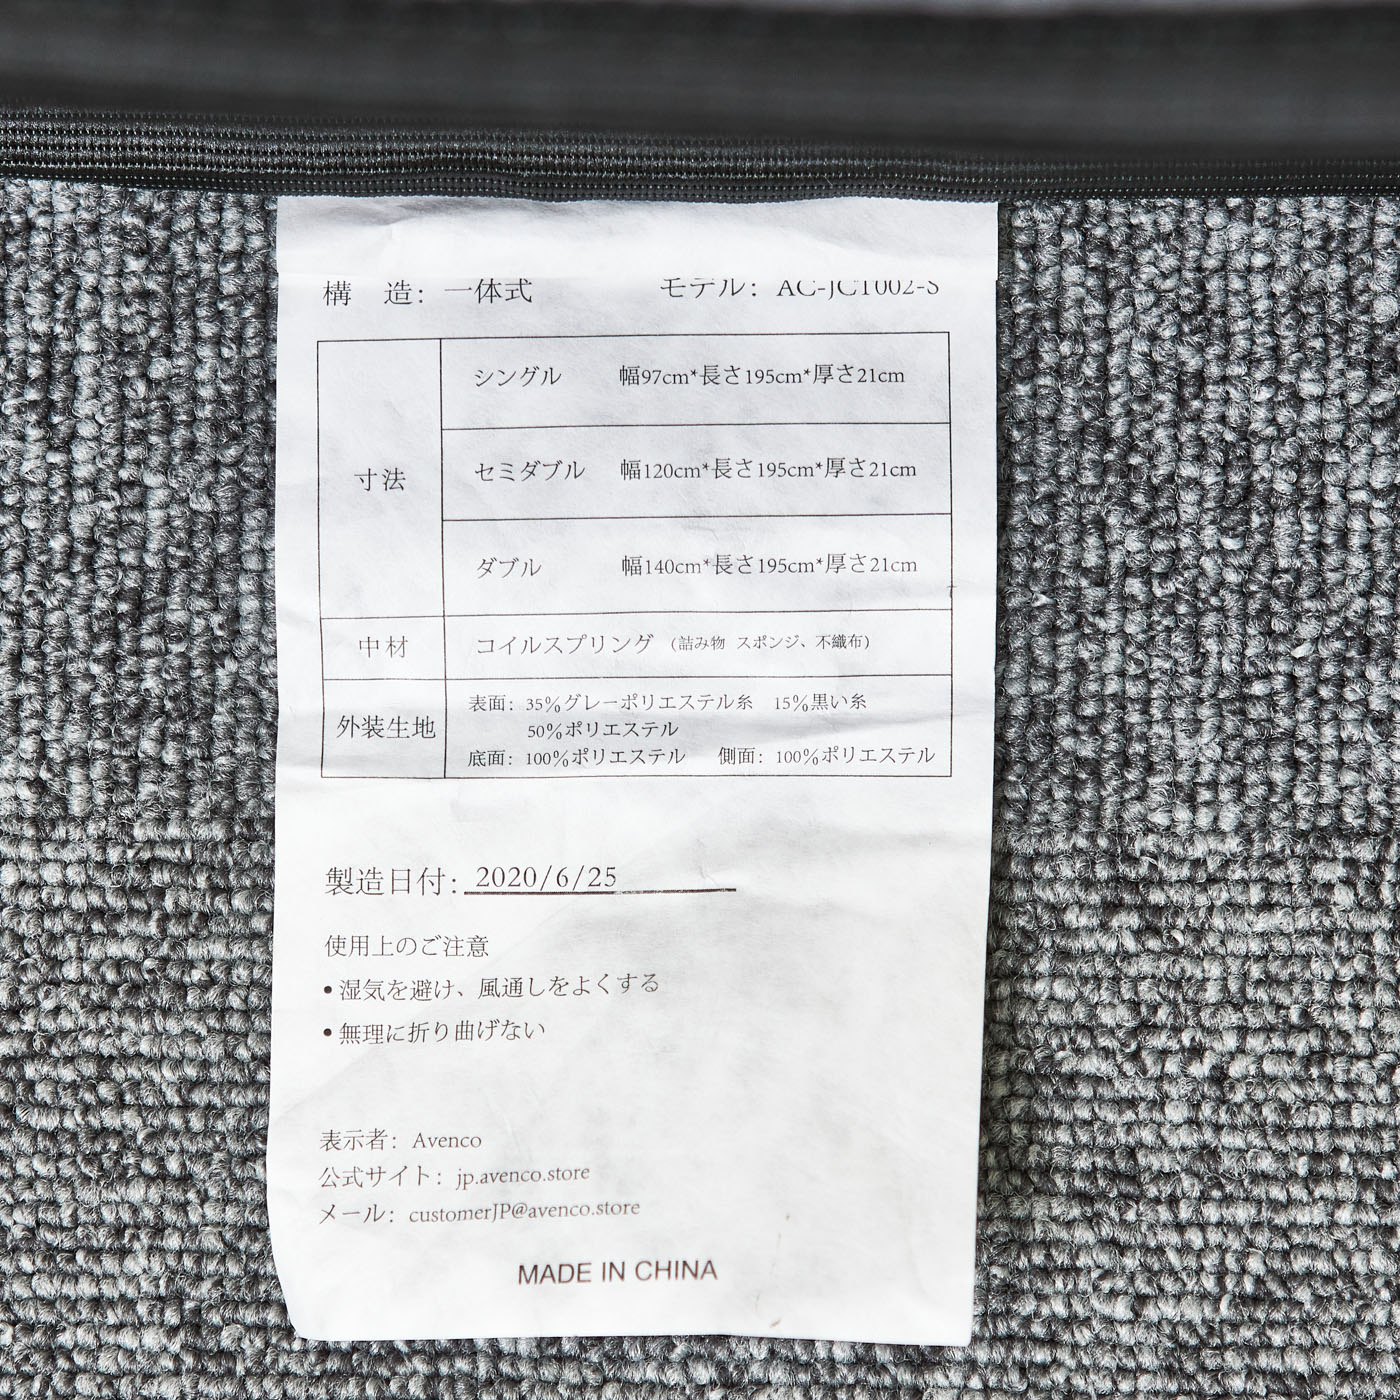 構 造: 一体式 モデル: AC-JC1002-S
シングル 幅97cm*長さ195cm*厚さ21cm
寸法 セミダブル 幅120cm*長さ195cm*厚さ21cm
ダブル 幅140cm*長さ195cm*厚さ21cm
中材 コイルスプリング (詰み物 スポンジ、不織布)
外装生地 表面: 35%グレーポリエステル糸 15%黒い糸
50%ポリエステル
底面: 100%ポリエステル 側面: 100%ポリエステル
製造日付: 2020/6/25
使用上のご注意
•湿気を避け、風通しをよくする
•無理に折り曲げない
表示者: Avenco
公式サイト: jp.avenco.store
メール: customerJP@avenco.store
MADE IN CHINA